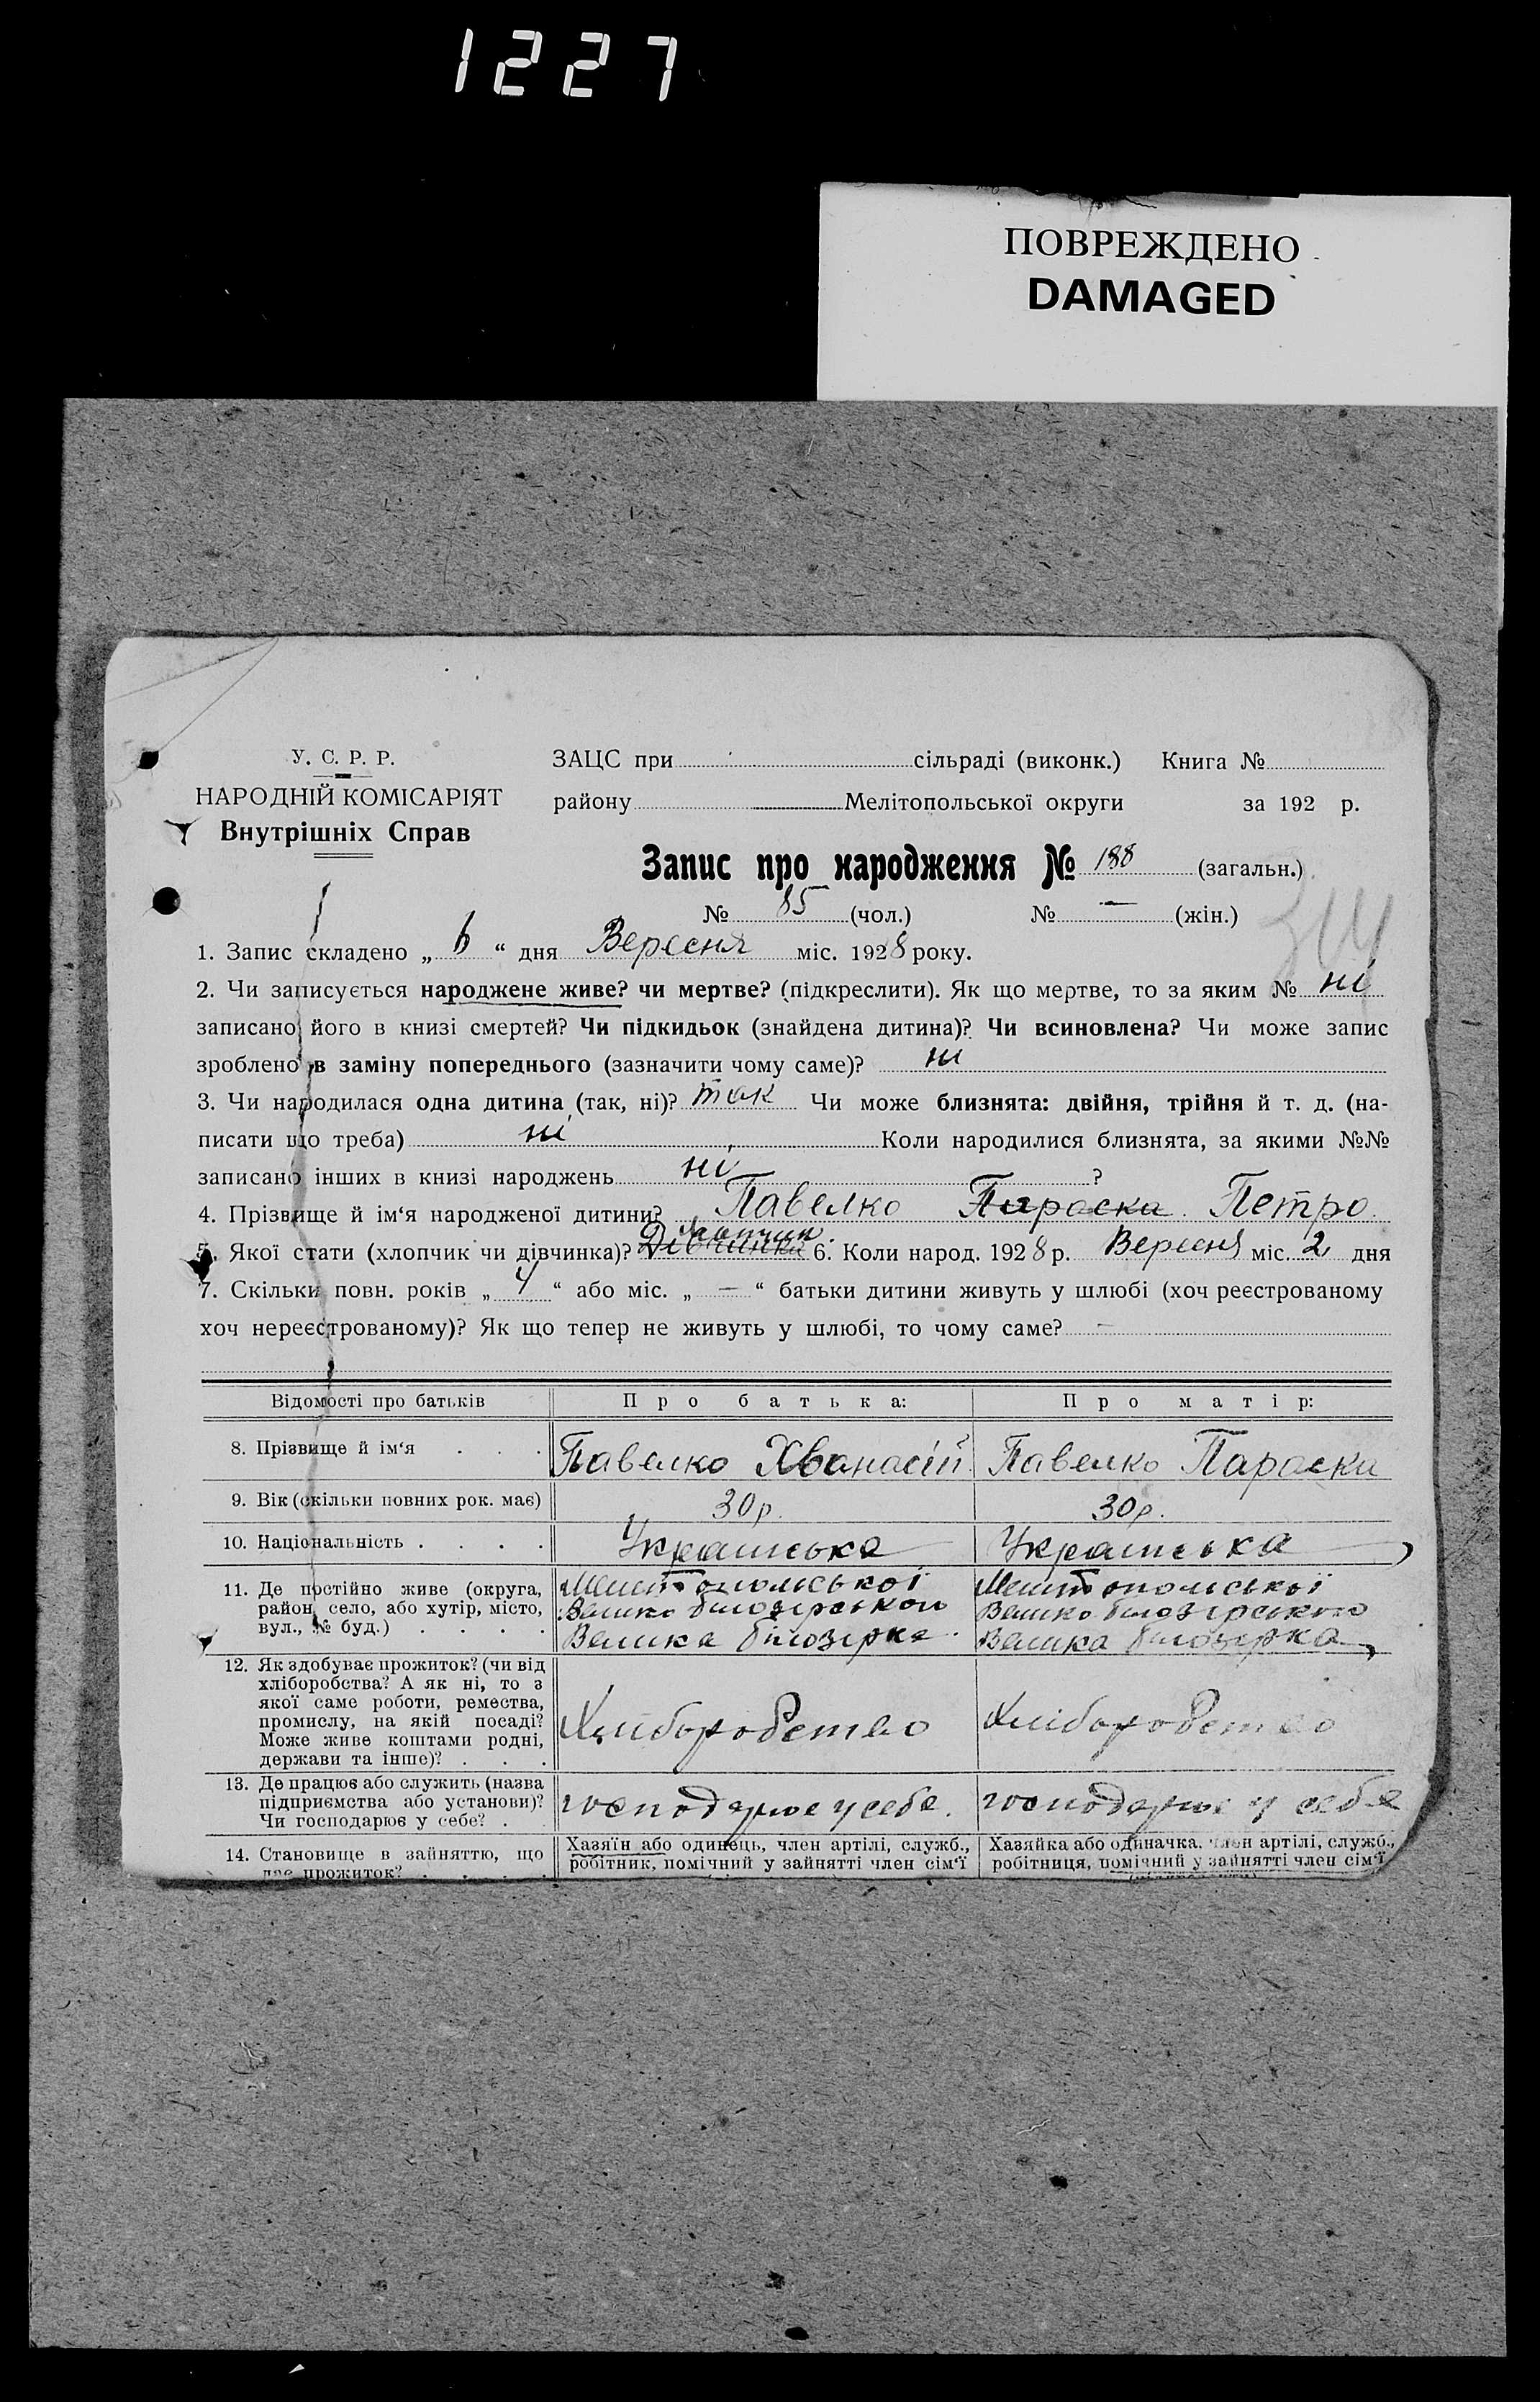 1227
ПОВРЕЖДЕНО
DAMAGED
У. С. Р. Р.
НАРОДНІЙ КОМІСАРІЯТ
Внутрішніх Справ
ЗАЦС при сільраді (виконк.) Книга №
району Мелітопольської округи за 192 р.
Запис про народження № 188 (загальн.)
№ 85 (чол.) № — (жін.)
314
1. Запис складено „ 6 “ дня Вересня міс. 1928 року.
2. Чи записується народжене живе? чи мертве? (підкреслити). Як що мертве, то за яким № ні
записано його в книзі смертей? Чи підкидьок (знайдена дитина)? Чи всиновлена? Чи може запис
зроблено в заміну попереднього (зазначити чому саме)? ні
3. Чи народилася одна дитина (так, ні)? так Чи може близнята: двійня, трійня й т. д. (на-
писати що треба) ні Коли народилися близнята, за якими №№
записано інших в книзі народжень ні ?
4. Прізвище й ім‘я народженої дитини? Павелко Параска Петро
5. Якої стати (хлопчик чи дівчинка)? Дівчинка хлопчик 6. Коли народ. 1928 р. Вересня міс. 2 дня
7. Скільки повн. років „ 4 “ або міс. „ — “ батьки дитини живуть у шлюбі (хоч реєстрованому
хоч нереєстрованому)? Як що тепер не живуть у шлюбі, то чому саме? —
Відомості про батьків Про батька: Про матір:
8. Прізвище й ім‘я . . . Павелко Хванасій Павелко Параска
9. Вік (скільки повних рок. має) 30 р. 30 р.
10. Національність . . . . Українська Українська
11. Де постійно живе (округа, район, село, або хутір, місто, вул., № буд.) . . . .
Мелітопольської Мелітопольської
Велико білозірського Велико білозірського
Велика білозірка Велика білозірка
12. Як здобуває прожиток? (чи від
хліборобства? А як ні, то з
якої саме роботи, ремества,
промислу, на якій посаді?
Може живе коштами родні,
держави та інше)? . . .
Хліборобство Хліборобство
13. Де працює або служить (назва
підприємства або установи)?
Чи господарює у себе? .
господарює у себе. господарює у себе
14. Становище в зайняттю, що
дає прожиток? . . . .
Хазяїн або одинець, член артілі, служб.,
робітник, помічний у зайнятті член сім‘ї
Хазяйка або одиначка, член артілі, служб.,
робітниця, помічний у зайнятті член сім‘ї